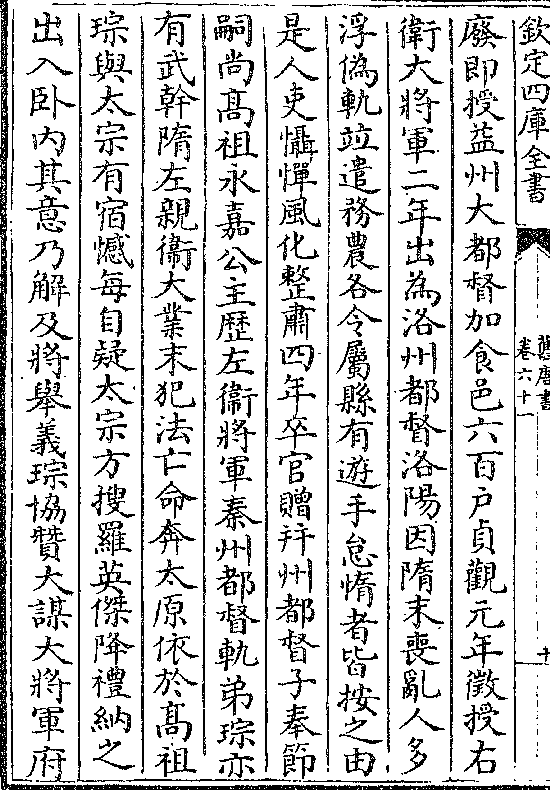 欽定四庫全書
舊唐書
卷六十一
十
廢即授益州大都督加食邑六百户貞觀元年徵授右
衛大將軍二年出為洛州都督洛陽因隋末喪亂人多
浮偽軌竝遣務農各令屬縣有遊手怠惰者皆按之由
是人吏懾憚風化整肅四年卒官贈幷州都督子奉節
嗣尚髙祖永嘉公主歴左衛將軍秦州都督軌弟琮亦
有武幹隋左親衞大業末犯法亡命奔太原依於髙祖
琮與太宗有宿憾每自疑太宗方搜羅英傑降禮納之
出入卧内其意乃解及將舉義琮協贊大謀大將軍府